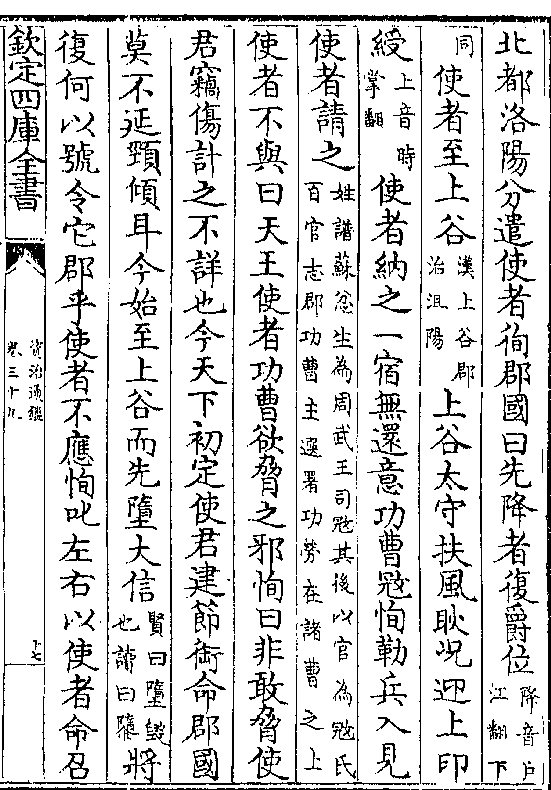 北都洛陽分遣使者徇郡國曰先降者復爵位降音户江翻下
同使者至上谷漢上谷郡治沮陽上谷太守扶風耿况迎上印
綬上音時掌翻使者納之一宿無還意功曹冦恂勒兵入見
使者請之姓譜蘇忿生為周武王司冦其後以官為冦氏百官志郡功曹主選署功勞在諸曹之上
使者不與曰天王使者功曹欲脅之邪恂曰非敢脅使
君竊傷計之不詳也今天下初定使君建節銜命郡國
莫不延頸傾耳今始至上谷而先墮大信賢曰墮毀也讀曰隳將
復何以號令它郡乎使者不應恂叱左右以使者命召
欽定四庫全書
資治通鑑
卷三十九
十七